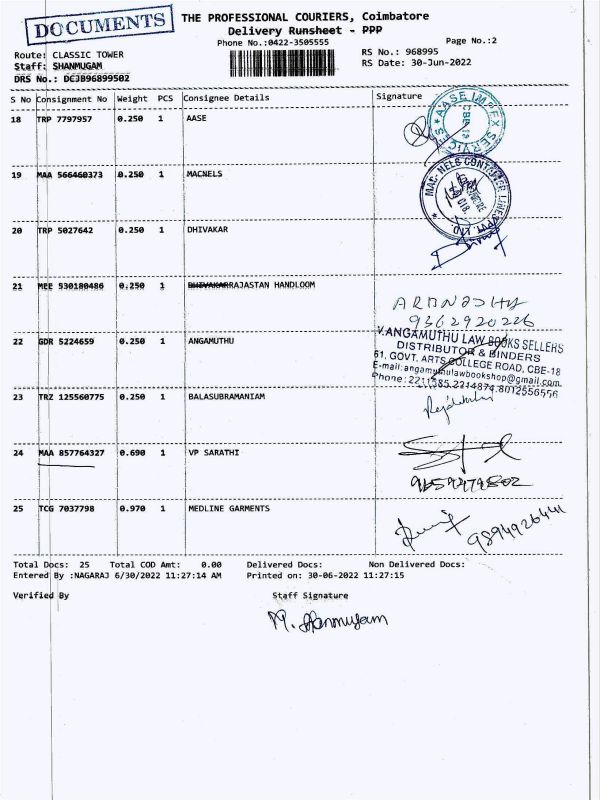 DOCUMENTS
THE PROFESSIONAL COURIERS, Coimbatore
Delivery Runsheet - PPP
Phone No.:0422-3505555
Page No.:2
Route: CLASSIC TOWER
RS No.: 968995
Staff: SHANMUGAM
RS Date: 30-Jun-2022
DRS No.: DCJB96899502
S No Consignment No Weight PCS Consignee Details Signature
18 TRP 7797957 0.250 1 AASE
AASE IMPEX SERVICES
19 MAA 566460373 0.250 1 MACNELS
MAC-NELS CONTAINER LINES PVT. LTD.
20 TRP 5027642 0.250 1 DHIVAKAR
21 MEE 530180486 0.250 1 DHIVAKARRAJASTAN HANDLOOM
9362920226
22 GDR 5224659 0.250 1 ANGAMUTHU
V.ANGAMUTHU LAW BOOKS SELLERS
DISTRIBUTOR & BINDERS
61, GOVT. ARTS COLLEGE ROAD, CBE-18
E-mail:angamuthulawbookshop@gmail.com
Phone: 2211385,2214874,8012556556
23 TRZ 125560775 0.250 1 BALASUBRAMANIAM
24 MAA 857764327 0.690 1 VP SARATHI
25 TCG 7037798 0.970 1 MEDLINE GARMENTS
9894926441
Total Docs: 25 Total COD Amt: 0.00 Delivered Docs: Non Delivered Docs:
Entered By :NAGARAJ 6/30/2022 11:27:14 AM Printed on: 30-06-2022 11:27:15
Verified By Staff Signature
M. Shanmugam